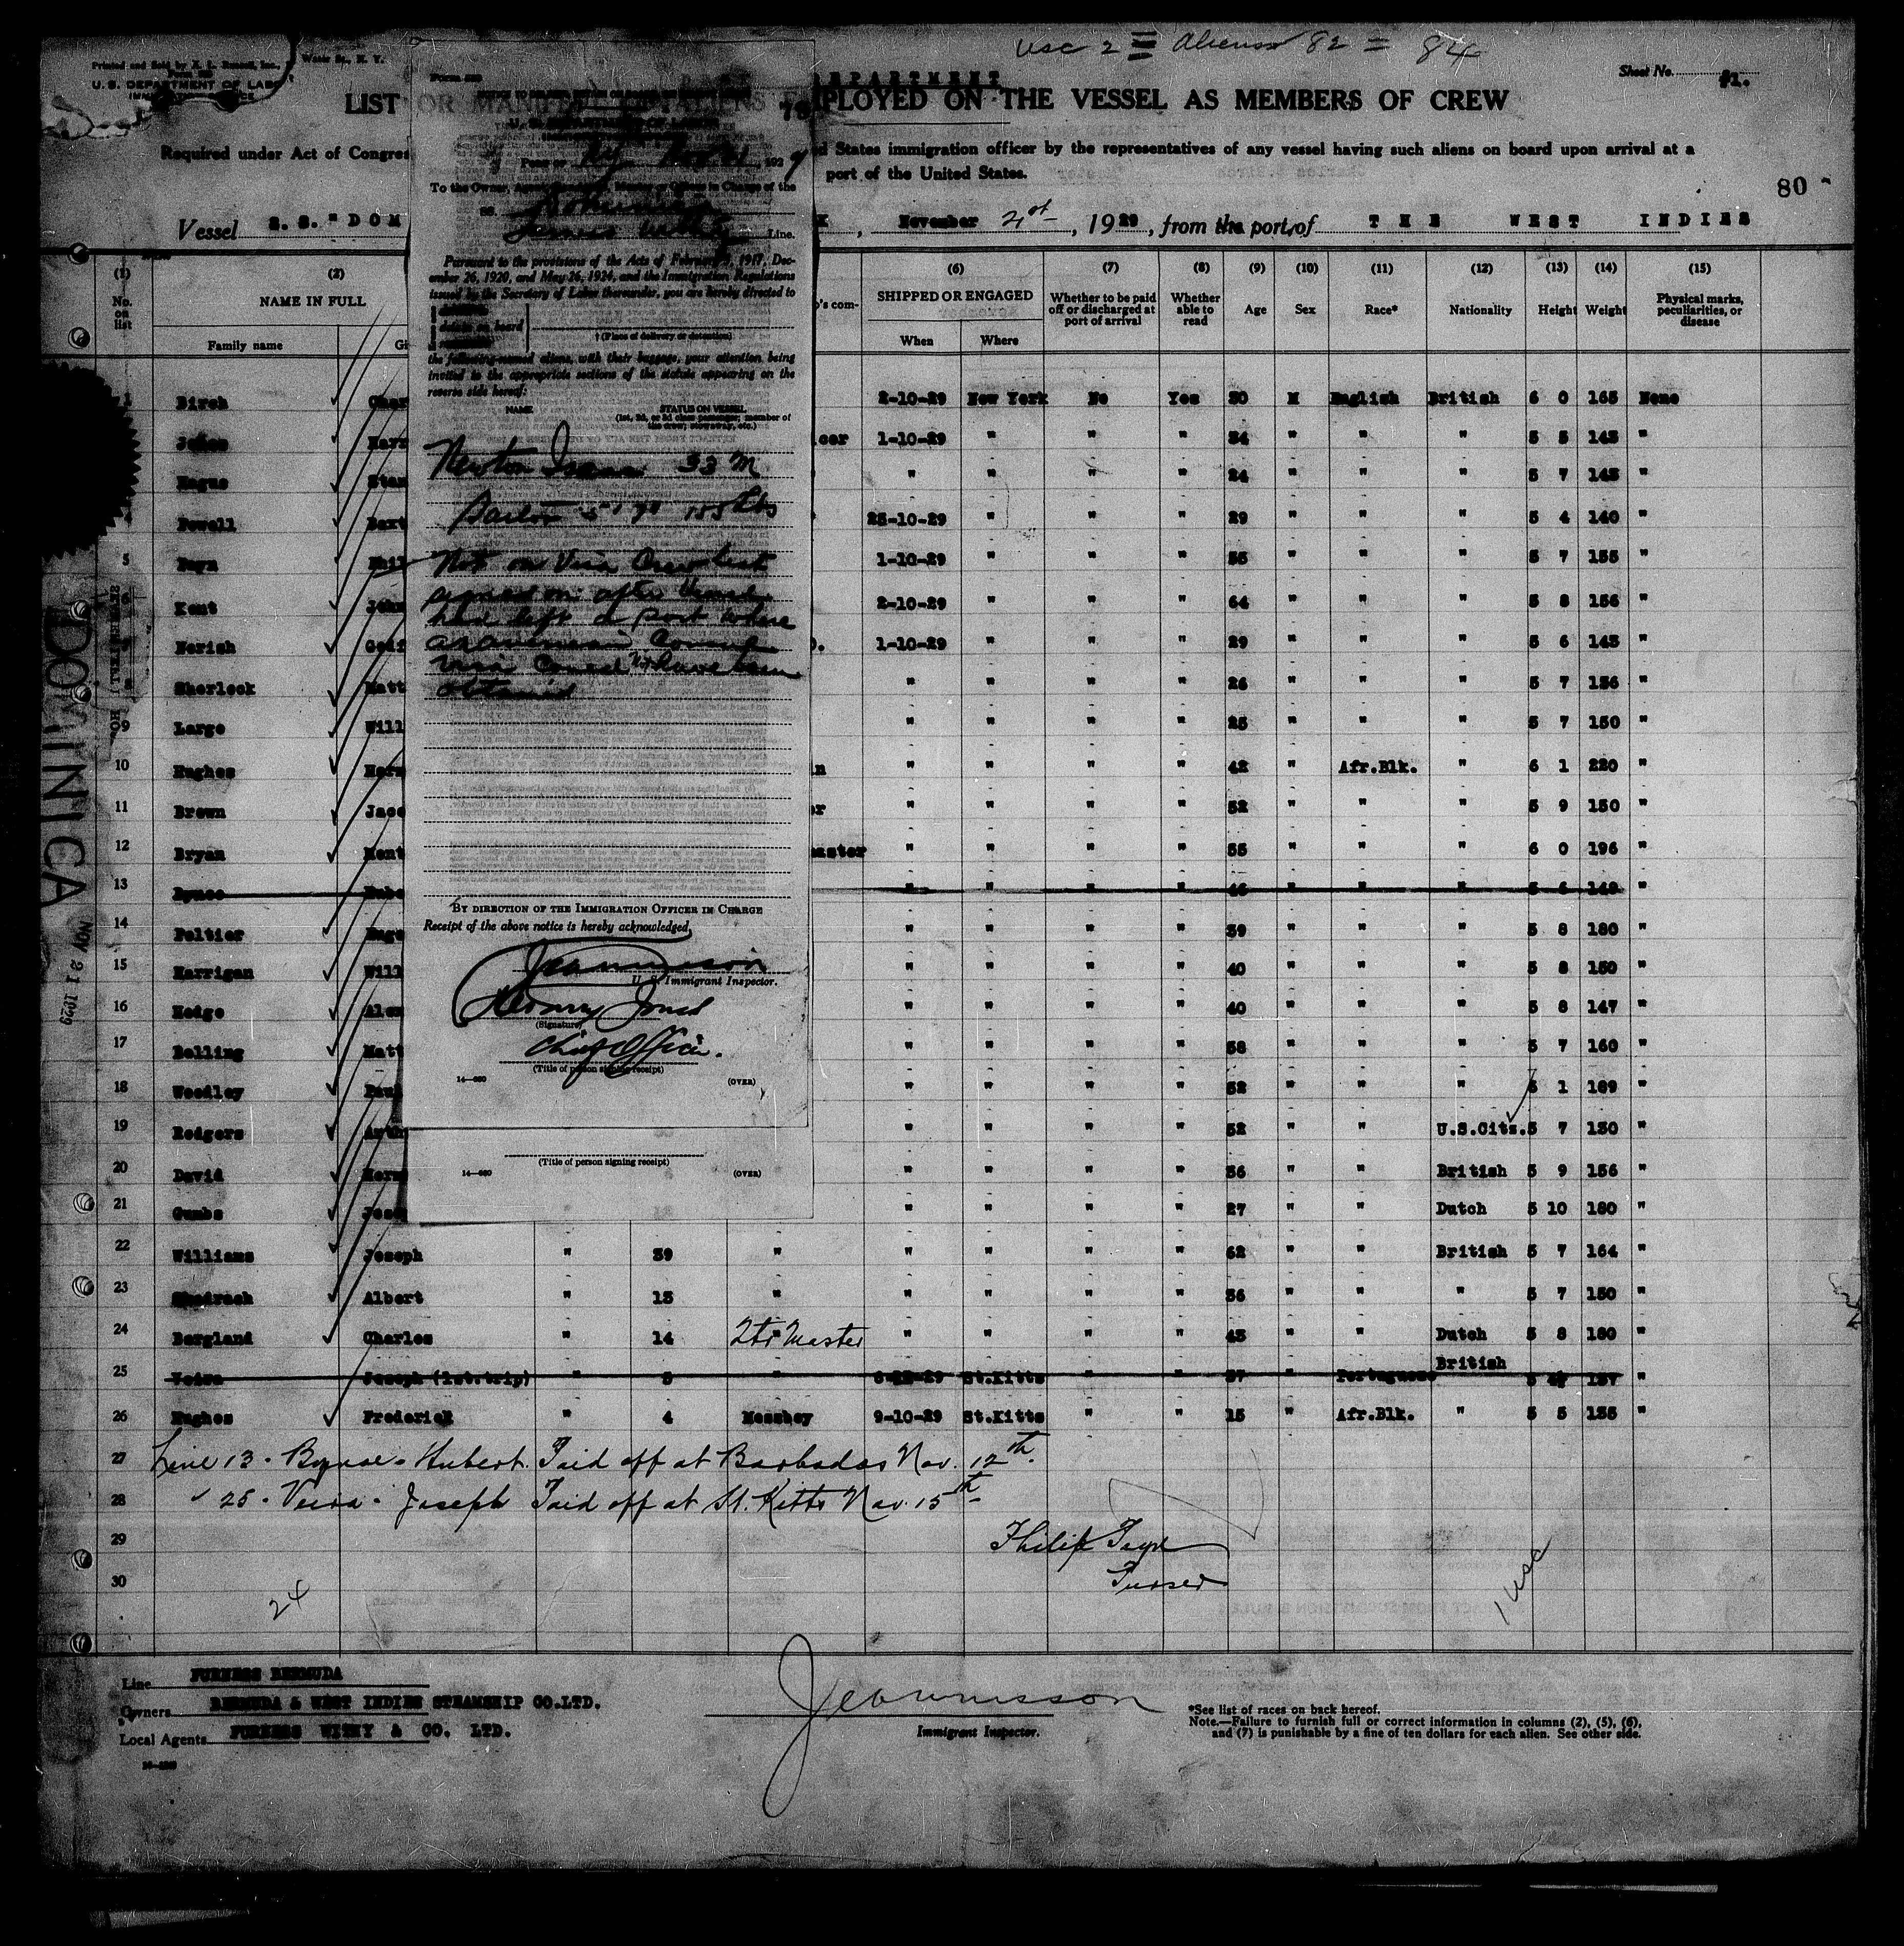 usc 2 = Aliens 82 = 84
Printed and Sold by
Water St., N. Y.
U. S. DEPARTMENT OF LABOR
Sheet No. #1.
DEPARTMENT
LIST OR MANIFEST OF ALIENS EMPLOYED ON THE VESSEL AS MEMBERS OF CREW
79
Required under Act of Congres
d States immigration officer by the representatives of any vessel having such aliens on board upon arrival at a
port of the United States.
80
Vessel S. S. "DOM
K, November 21st, 1929, from the port of THE WEST INDIES
PORT OF NY Nov 21 1929
To the Owner, Agent, Consignee, Master or Officer in Charge of the
SS. Dominica
Furness Withy Line.
Pursuant to the provisions of the Acts of February 5, 1917, Dec-
ember 26, 1920, and May 26, 1924, and the Immigration Regulations
issued by the Secretary of Labor thereunder, you are hereby directed to
detain on board
(Place of delivery or detention)
the following-named aliens, with their baggage, your attention being
invited to the appropriate sections of the statute appearing on the
reverse side hereof:
NAME STATUS ON VESSEL
(1st, 2d, or 3d class passenger, member of
the crew, stowaway, etc.)
Newton Isaac 33 M
Sailor 5' 7" 155 lbs
Not on Visa Crew List
signed on after vessel
had left a port where
American Consul
Visa Could have been
obtained
BY DIRECTION OF THE IMMIGRATION OFFICER IN CHARGE
Receipt of the above notice is hereby acknowledged,
Jeannisson
U. S. Immigrant Inspector.
Henry Jones
(Signature)
Chief Officer.
(Title of person signing receipt)
14—660 (OVER)
(Title of person signing receipt)
14—660 (OVER)
(1) (2) (6) (7) (8) (9) (10) (11) (12) (13) (14) (15)
No. on list
NAME IN FULL
Family name Gi
's com-
SHIPPED OR ENGAGED
When Where
Whether to be paid off or discharged at port of arrival
Whether able to read
Age Sex Race* Nationality Height Weight
Physical marks, peculiarities, or disease
1 Birch Char 2-10-29 New York No Yes 30 M English British 6 0 165 None
Jones Harr cer 1-10-29 " " " 34 " " " 5 5 145 "
Hague Stan " " " " 24 " " " 5 7 145 "
4 Powell Baxt 25-10-29 " " " 29 " " " 5 4 140 "
5 Payn Phil 1-10-29 " " " 35 " " " 5 7 155 "
6 Kent John 2-10-29 " " " 64 " " " 5 8 156 "
Norish Geof 1-10-29 " " " 29 " " " 5 6 145 "
8 Sherlock Matt " " " " 26 " " " 5 7 156 "
9 Large Will " " " " 25 " " " 5 7 150 "
10 Hughes Herm n " " " " 42 " Afr.Blk. " 6 1 220 "
11 Brown Jaco r " " " " 52 " " " 5 9 150 "
12 Bryan Kent master " " " " 55 " " " 6 0 196 "
13 Bynoe Hube " " " " 46 " " " 5 6 149 "
14 Peltier Euge " " " " 39 " " " 5 8 180 "
15 Harrigan Will " " " " 40 " " " 5 8 150 "
16 Hodge Alex " " " " 40 " " " 5 8 147 "
17 Belling Matt " " " " 38 " " " 5 7 160 "
18 Woodley Paul " " " " 32 " " " 5 1 169 "
19 Rodgers Auth " " " " 52 " " U.S.Citz. 5 7 130 "
20 David Herm " " " " 36 " " British 5 9 156 "
21 Gumbs Jose " " " " 27 " " Dutch 5 10 180 "
22 Williams Joseph " 39 " " " " " 62 " " British 5 7 164 "
23 Shadrach Albert " 13 " " " " " 36 " " " 5 7 150 "
24 Bergland Charles " 14 Qtr Master " " " " 43 " " Dutch 5 8 180 "
25 Veira Joseph (1st.trip) " 5 " St.Kitts " " 37 " Portuguese British 5 137 "
26 Hughes Frederick " 4 Messboy 9-10-29 St.Kitts " " 15 " Afr.Blk. " 5 5 135 "
27 Line 13 - Bynoe - Hubert. Paid off at Barbados Nov. 12th.
28 " 25 - Veira - Joseph Paid off at St. Kitts Nov. 15th
29 Philip Payn
30 Purser
24
1 usc
DOMINICA
NOV 21 1929
Line FURNESS BERMUDA
Owners BERMUDA & WEST INDIES STEAMSHIP CO.LTD.
Local Agents FURNESS WITHY & CO. LTD.
Jeannisson
Immigrant Inspector.
*See list of races on back hereof.
Note.—Failure to furnish full or correct information in columns (2), (5), (6),
and (7) is punishable by a fine of ten dollars for each alien. See other side.